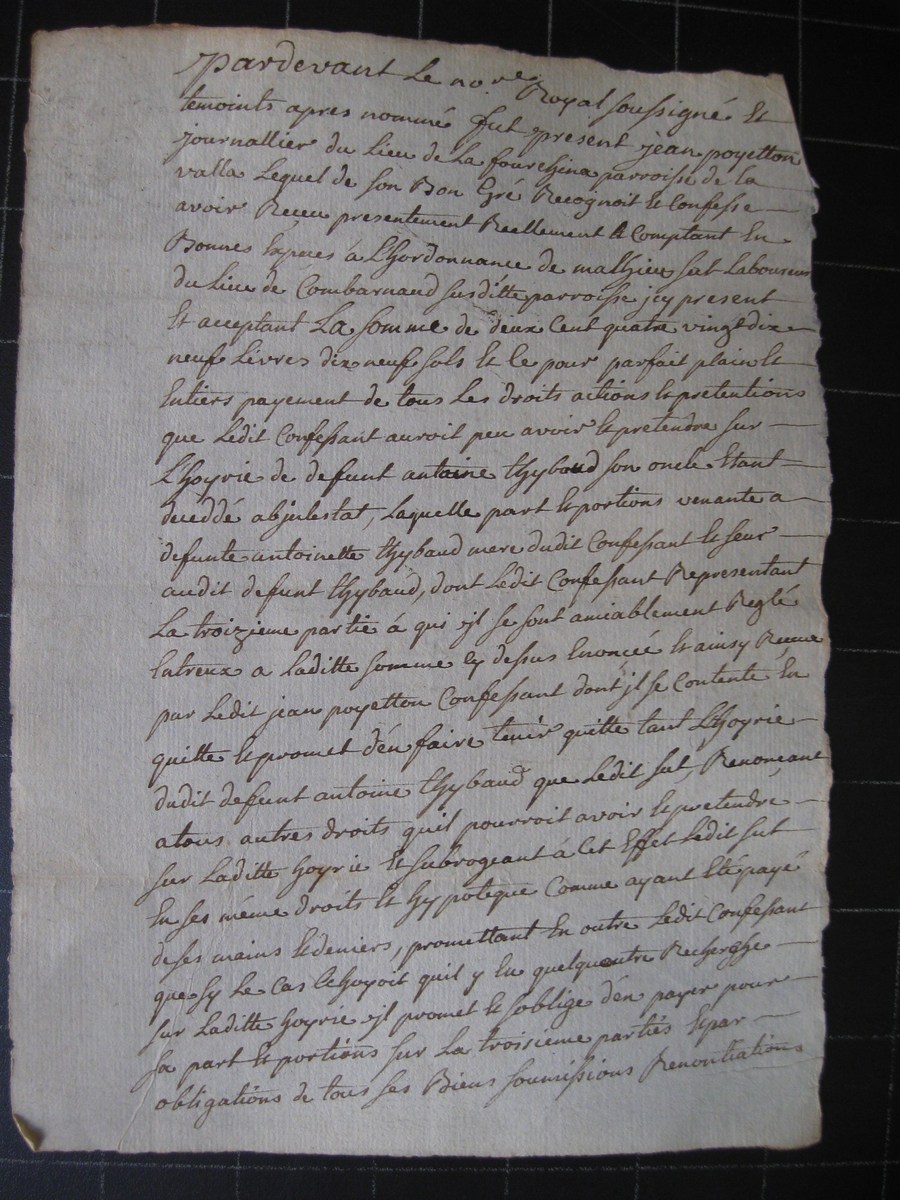 pardevant Le no.re Royal soussigné Et
temoints apres nommé fut present jean poyetton
journallier du Lieu de La fourchina parroisse de la
valla Lequel de son Bon Gré Recognoit Et Confesse
avoir Receu presentement Reellement Et Comptant En
Bonnes Especes á L'hordonnance de mathieu sut Laboureur
du Lieu de Combarnaud susditte parroisse jcy present
Et acceptant La somme de deux Cent quatre vingt dix
neuf Livres dix neuf sols Et Ce pour parfait plain Et
Entiers payement de tous Les droits actions Et pretentions
que Ledit Confessant auroit peu avoir Et pretendre sur
L'hoyrie de defunt antoine thybaud son oncle Etant
decedde abjntestat, Laquelle part Et portions venante a
defunte antoinette thybaud mere dudit Confessant Et seur
audit defunt thybaud, dont Ledit Confessant Representant
La troizieme partie á qui jl se sont amiablement Reglé
Entreux a Laditte somme Cy dessus Enoncéé Et ainsy Receue
par Ledit jean poyetton Confessant dont jl se Contente En
quitte Et promet d'én faire tenir quitte tant L'hoyrie
dudit defunt antoine thybaud que Ledit sut, Renonçant
atous autres droits quil pourroit avoir Et pretendre
sur Laditte hoyrie Et subrogeant á Cet Effet Ledit sut
En ses méme droits Et hypoteque Comme ayant Eté payé
de ses mains Et deniers, promettant En outre Ledit Confessant
que sy Le Cas Echoyoit quil y En quelquentre Recherche
sur Laditte hoyrie jl promet Et soblige d'én payer pour
sa part Et portions sur La troisieme partiés Et par
obligations de tous ses Biens soumissions Renontiations